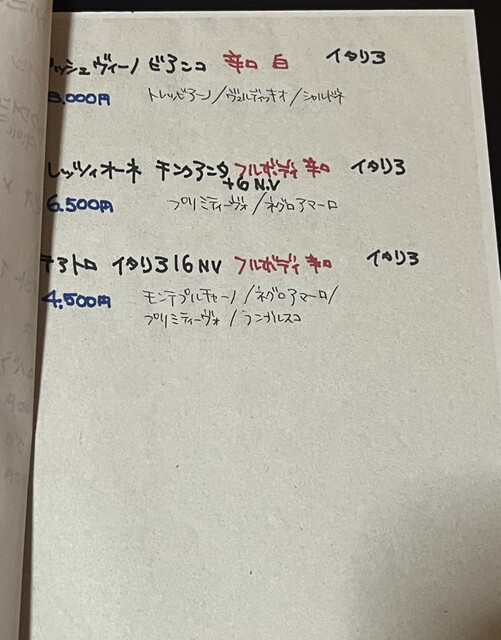 ッシュヴィーノ ビアンコ 辛口 白 イタリア
3.000円 トレッビアーノ/ヴェルディッキオ/シャルドネ
レッツィオーネ チンクアンタ フルボディ 辛口 イタリア
+6 N.V
6.500円 プリミティーヴォ/ネグロアマーロ
テアトロ イタリア16NV フルボディ 辛口 イタリア
4.500円 モンテプルチャーノ/ネグロアマーロ/
プリミティーヴォ/ランブルスコ